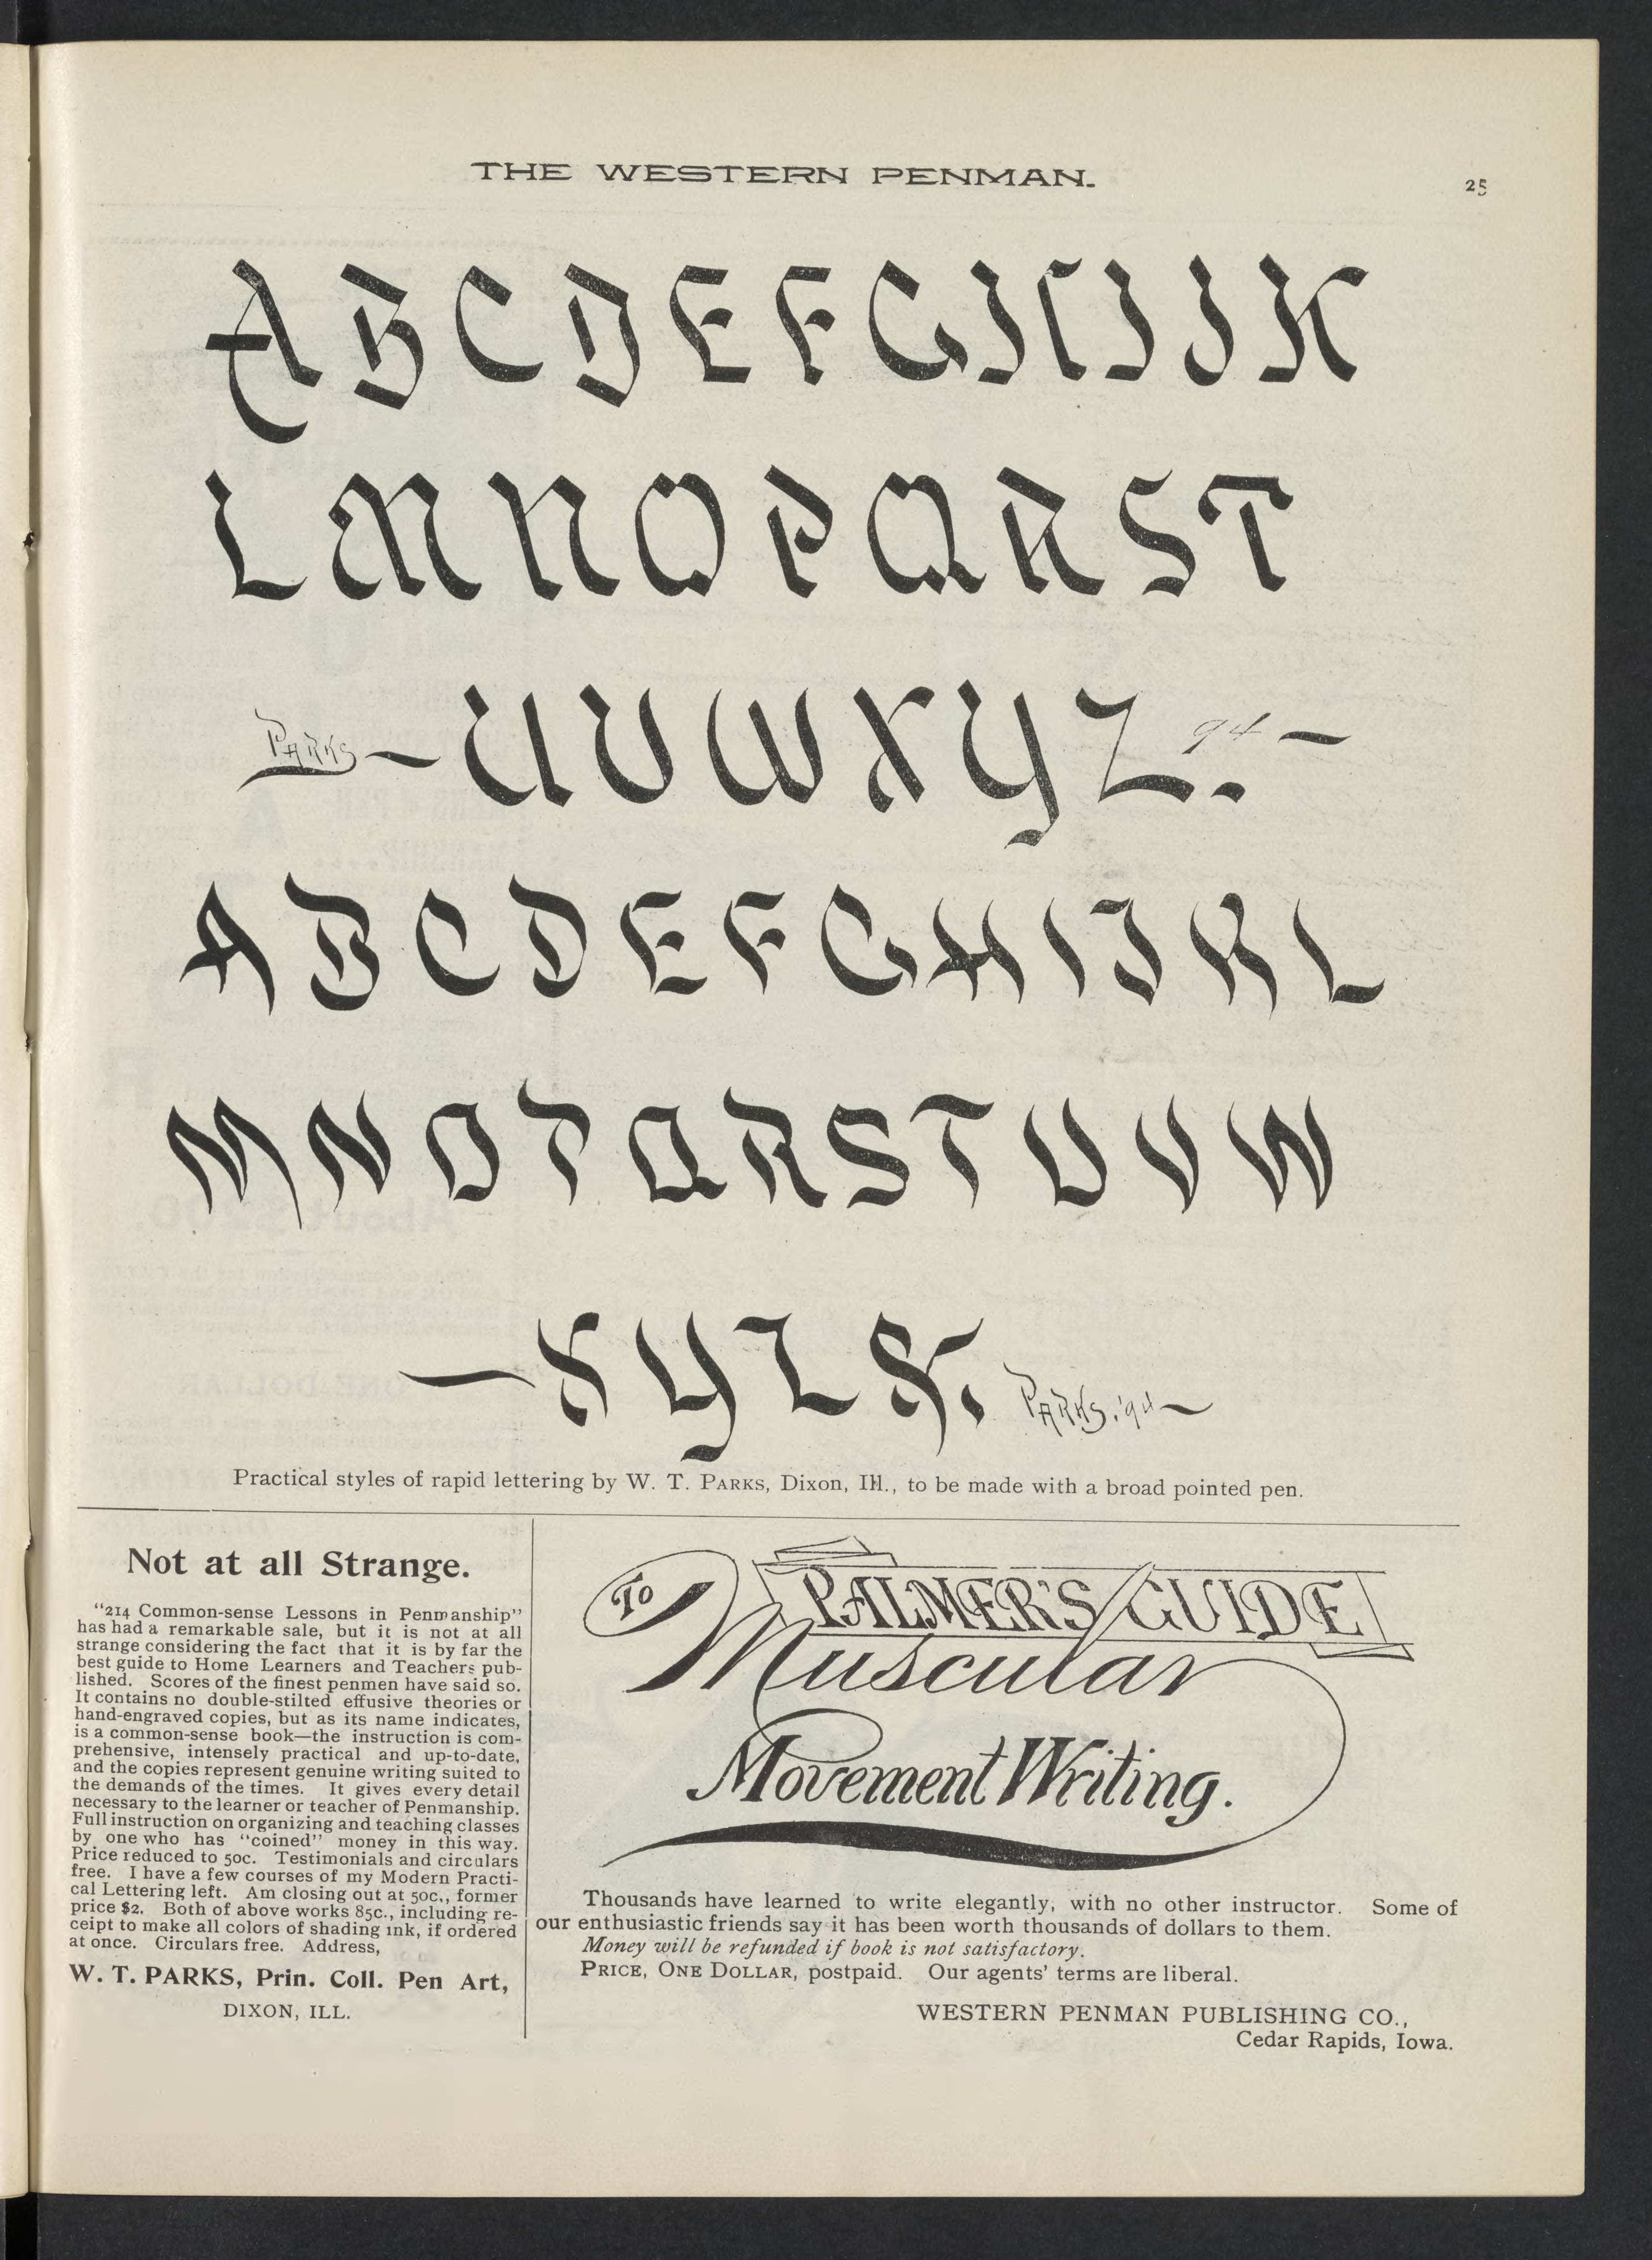 THE WESTERN PENMAN.
25
A B C D E F G H I J K
L M N O P Q R S T
PARKS U V W X Y Z. 94
A B C D E F G H I J K L
M N O P Q R S T U V W
X Y Z &. PARKS. '94
Practical styles of rapid lettering by W. T. PARKS, Dixon, Ill., to be made with a broad pointed pen.
Not at all Strange.
"214 Common-sense Lessons in Penmanship"
has had a remarkable sale, but it is not at all
strange considering the fact that it is by far the
best guide to Home Learners and Teachers pub-
lished. Scores of the finest penmen have said so.
It contains no double-stilted effusive theories or
hand-engraved copies, but as its name indicates,
is a common-sense book—the instruction is com-
prehensive, intensely practical and up-to-date,
and the copies represent genuine writing suited to
the demands of the times. It gives every detail
necessary to the learner or teacher of Penmanship.
Full instruction on organizing and teaching classes
by one who has "coined" money in this way.
Price reduced to 50c. Testimonials and circulars
free. I have a few courses of my Modern Practi-
cal Lettering left. Am closing out at 50c., former
price $2. Both of above works 85c., including re-
ceipt to make all colors of shading ink, if ordered
at once. Circulars free. Address,
W. T. PARKS, Prin. Coll. Pen Art,
DIXON, ILL.
PALMER'S GUIDE
To Muscular
Movement Writing.
Thousands have learned to write elegantly, with no other instructor. Some of
our enthusiastic friends say it has been worth thousands of dollars to them.
Money will be refunded if book is not satisfactory.
PRICE, ONE DOLLAR, postpaid. Our agents' terms are liberal.
WESTERN PENMAN PUBLISHING CO.,
Cedar Rapids, Iowa.